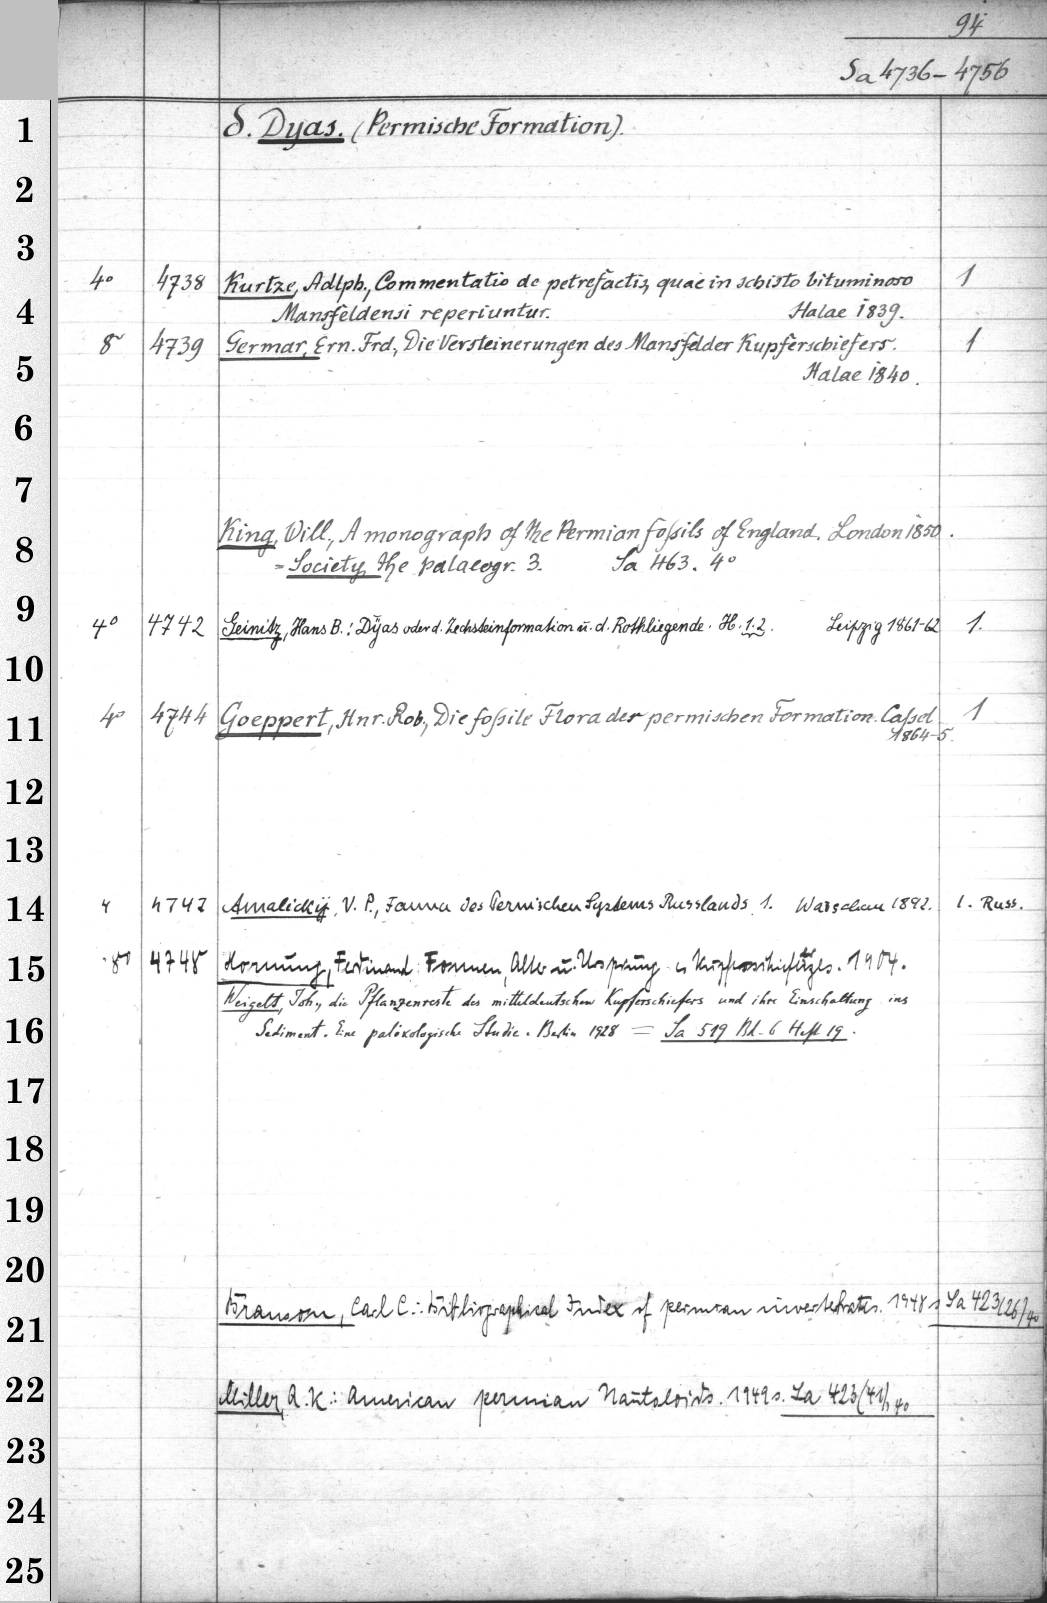 94
Sa 4736-4756
1 δ. Dyas. (Permische Formation).
2
3
4° 4738 Kurtze, Adlph., Commentatio de petrefactis, quae in schisto bituminoso 1
4 Mansfeldensi reperiuntur. Halae 1839.
8° 4739 Germar, Ern. Frd., Die Versteinerungen des Mansfelder Kupferschiefers. 1
5 Halae 1840.
6
7
King, Will., A monograph of the Permian fossils of England. London 1850.
8 = Society, the palaeogr. 3. Sa 463. 4°
9
4° 4742 Geinitz, Hans B.: Dÿas oder d. Zechsteinformation u. d. Rothliegende. H. 1.2. Leipzig 1861-62 1.
10
4° 4744 Goeppert, Hnr. Rob., Die fossile Flora der permischen Formation. Cassel 1
11 1864-5.
12
13
14 4 4747 Amalickij, V. P., Fauna des Permischen Systems Russlands 1. Warschau 1892. 1. Russ.
15 8° 4748 Hornung, Ferdinand: Formen, Alter u. Ursprung d. Kupferschiefererzes. 1904.
Weigelt, Joh., die Pflanzenreste des mitteldeutschen Kupferschiefers und ihre Einschaltung ins
16 Sediment. Eine paläkologische Studie. Berlin 1928 = Sa 519 Bd. 6 Heft 19.
17
18
19
20
Branson, Carl C.: Bibliographical Index of permian invertebrates. 1948 s. Sa 423(26) 4°
21
22 Miller, A. K.: American permian Nautiloids. 1949 s. Sa 423(41), 4°
23
24
25